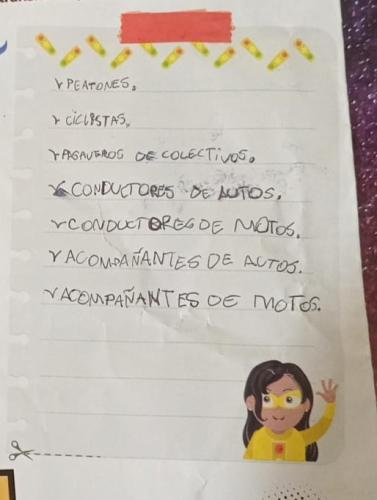 YPEATONES.
Y CICLISTAS.
YPASAVEROS DE COLECTIVOS.
Y CONDUCTORES DE AUTOS.
YCONDUCTORES DE MOTOS.
YACOMPAÑANTES DE AUTOS.
YACOMPAÑANTES DE MOTOS.